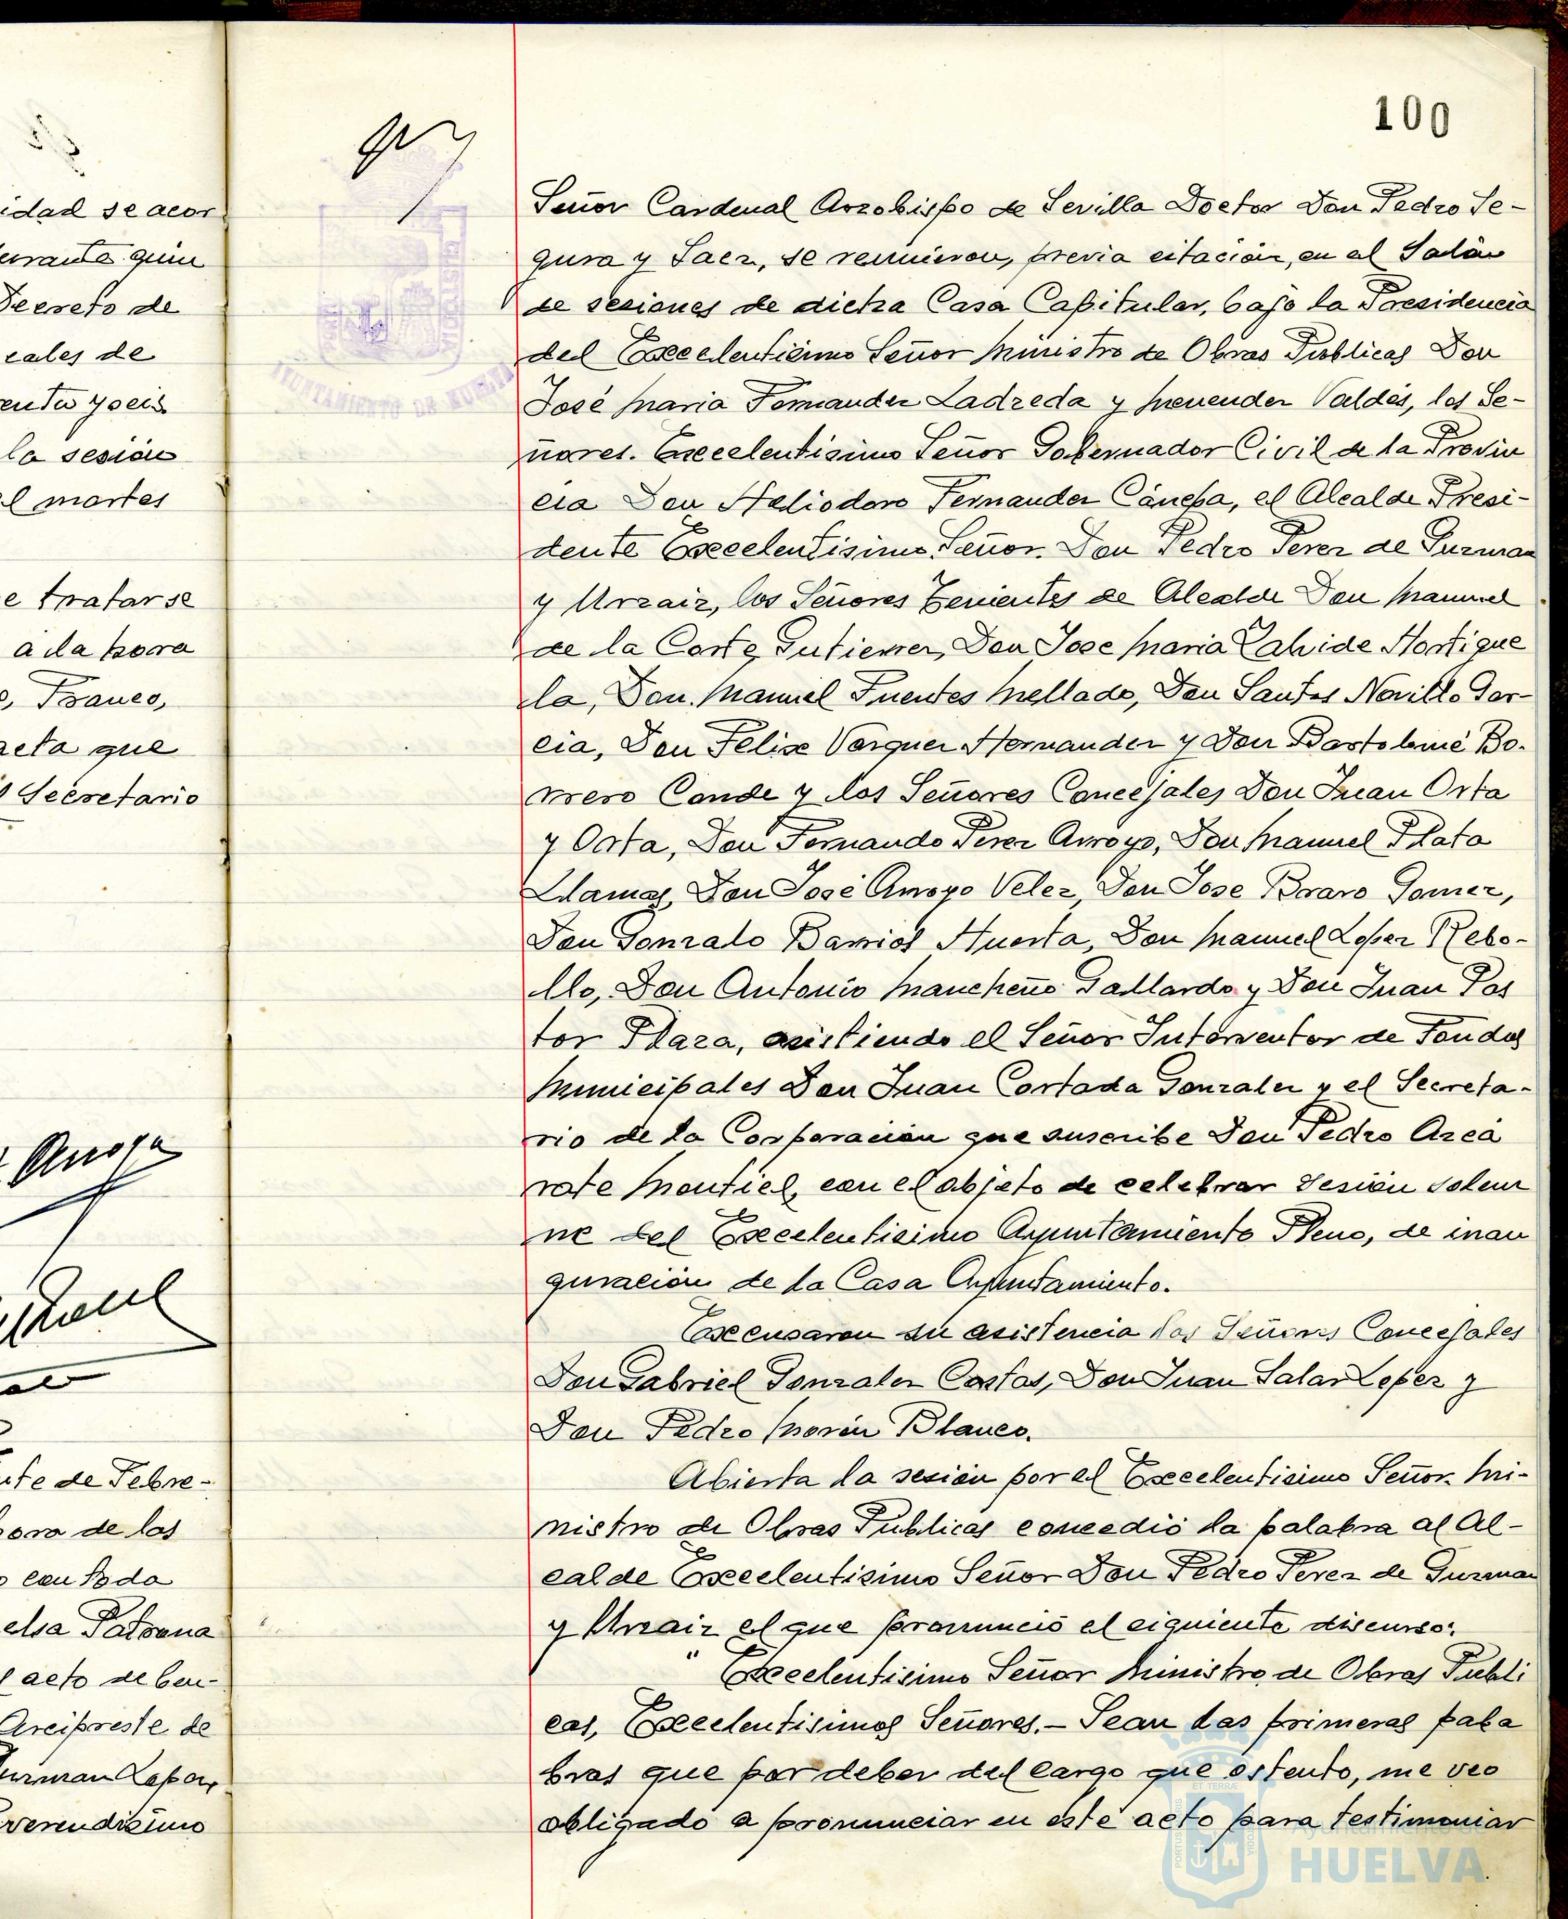 idad se acor
Decreto de
cales de
la sesión
el martes
e tratarse
a la hora
Franco,
acta que
Secretario
Arroyo
te de Febre-
hora de los
con toda
Patrona
acto de ben-
Arcipreste de
Guzman Lopez,
verendisimo
100
Señor Cardenal Arzobispo de Sevilla Doctor Don Pedro Se-
gura y Saez, se reunieron, previa citación, en el Salón
de sesiones de dicha Casa Capitular, bajo la Presidencia
del Excelentisimo Señor Ministro de Obras Publicas Don
José Maria Fernandez Ladreda y Menendez Valdés, los Se-
ñores. Excelentisimo Señor Gobernador Civil de la Provin
cia Don Heliodoro Fernandez Cánepa, el Alcalde Presi-
dente Excelentisimo Señor. Don Pedro Perez de Guzman
y Urzaiz, los Señores Tenientes de Alcalde Don Manuel
de la Corte Gutierrez, Don Jose Maria Zahide Hortigue
la, Don. Manuel Fuentes Mellado, Don Santos Novillo Gar-
cia, Don Felix Vazquez Hernandez y Don Bartolomé Bo-
rrero Conde y los Señores Concejales Don Juan Orta
y Orta, Don Fernando Perez Arroyo, Don Manuel Plata
Llamas, Don José Arroyo Velez, Don Jose Bravo Gomez,
Don Gonzalo Barrios Huerta, Don Manuel Lopez Rebo-
llo, Don Antonio Mancheño Gallardo y Don Juan Pas
tor Plaza, asistiendo el Señor Interventor de Fondos
Municipales Don Juan Cortada Gonzalez y el Secreta-
rio de la Corporación que suscribe Don Pedro Azca
rate Montiel, con el objeto de celebrar Sesión solem
ne del Excelentisimo Ayuntamiento Pleno, de inau
guración de la Casa Ayuntamiento.
Excusaron su asistencia los Señores Concejales
Don Gabriel Gonzalez Costas, Don Juan Salas Lopez y
Don Pedro Morón Blanco.
Abierta la sesión por el Excelentisimo Señor. Mi-
nistro de Obras Publicas concedió la palabra al Al-
calde Excelentisimo Señor Don Pedro Perez de Guzman
y Urzaiz el que pronunció el siguiente discurso:
" Excelentisimo Señor Ministro de Obras Publi
cas, Excelentisimos Señores.- Sean las primeras pala
bras que por deber del cargo que ostento, me veo
obligado a pronunciar en este acto para testimoniar
AYUNTAMIENTO DE HUELVA
Ayuntamiento de
HUELVA